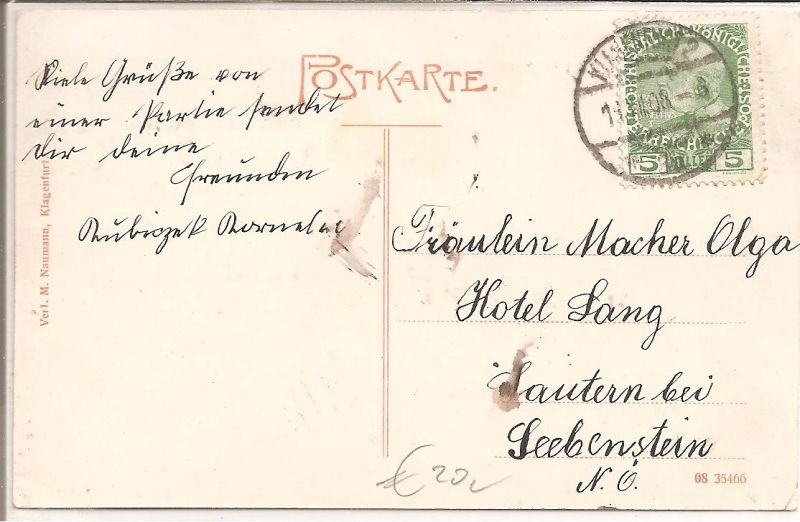 POSTKARTE.
Viele Grüße von
einer Partie sendet
Dir deine
Freundin
Kubiczek Kornelia
Verl. M. Naumann, Klagenfurt
5 HELLER 5
Fräulein Macher Olga
Hotel Lang
Sautern bei
Seebenstein
N. Ö.
08 35466
€ 20,